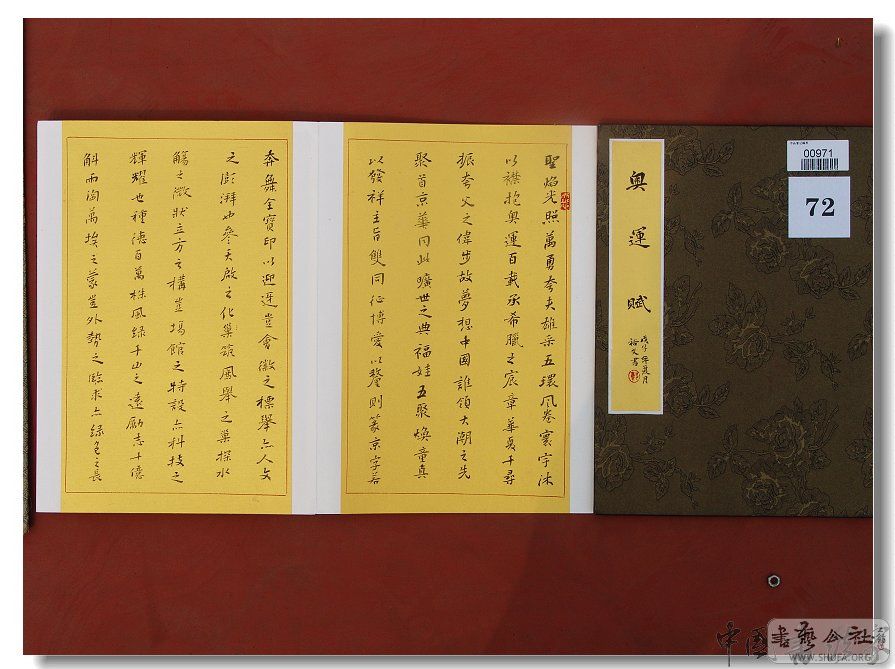 奥運賦
戊子年夏月
裕文書
00971
72
聖焰光照萬勇夸夫雄采五環風卷寰宇沐
以襟抱奥運百載承希臘之宸章華夏千尋
振夸父之偉步故夢想中國誰領大潮之先
聚首京華同此曠世之典福娃五聚煥童真
以發祥主旨雙同征博愛以鏊則篆京字若
奔舞金寶印以迎迓豈會徽之標舉亦人文
之澎湃也參天啟之化巢筑風舉之巢探水
觴之微狀立方之構豈場館之特設亦科技之
輝耀也種德百萬株風緑千山之遠勵志十億
斛而陶萬埃之蒙豈外勢之臨求亦緑色之長
中国書藝公社
WWW.SHUFA.ORG